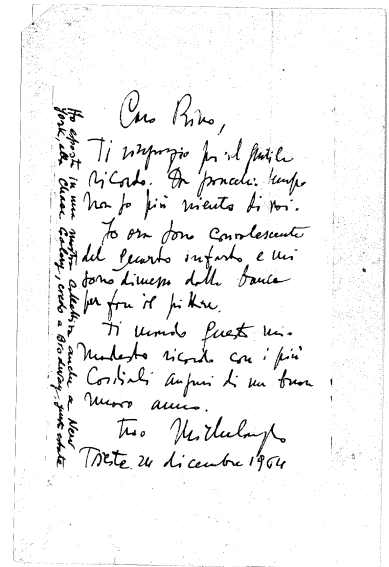 Caro Rino,
Ti ringrazio per il gentile
ricordo. Da parecchio tempo
non so più niente di voi.
Io ora sono convalescente
del quarto infarto e mi
sono dimesso dalla banca
per fare il pittore.
Ti mando questo mio
modesto ricordo con i più
cordiali auguri di un buon
nuovo anno.
tuo Michelangelo
Trieste 24 dicembre 1964
Ho esposto in una mostra collettiva anche a New
York, alla Chase Galery, credo a Broadway, quest'estate